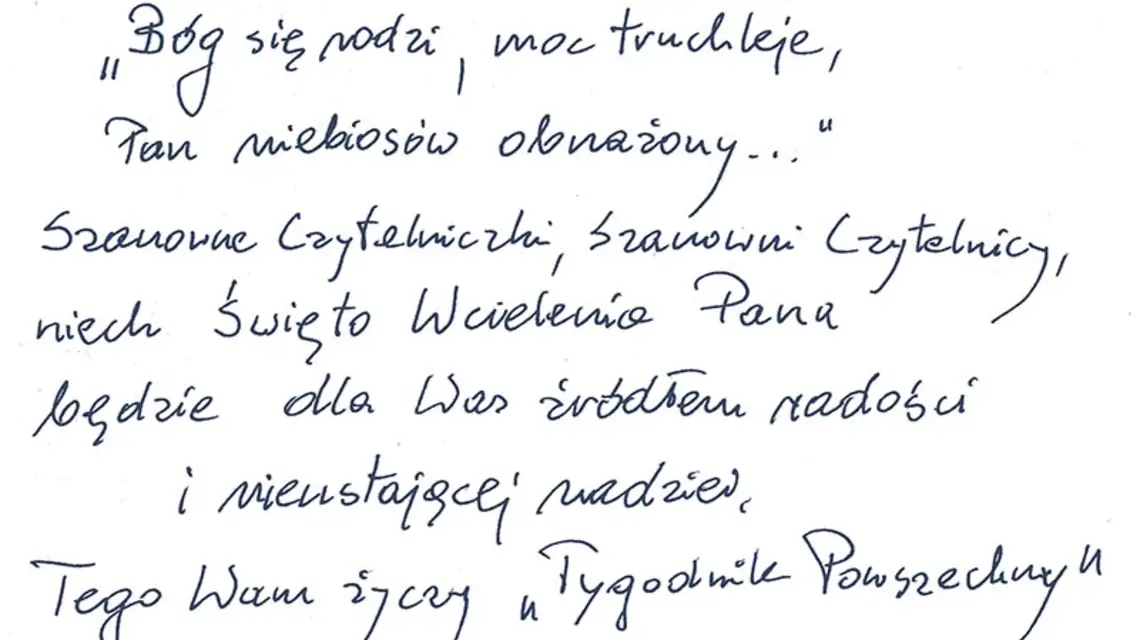 „Bóg się rodzi, moc truchleje,
Pan niebiosów obnażony..."
Szanowne Czytelniczki, Szanowni Czytelnicy,
niech Święto Wcielenia Pana
będzie dla Was źródłem radości
i nieustającej nadziei.
Tego Wam życzy „Tygodnik Powszechny"